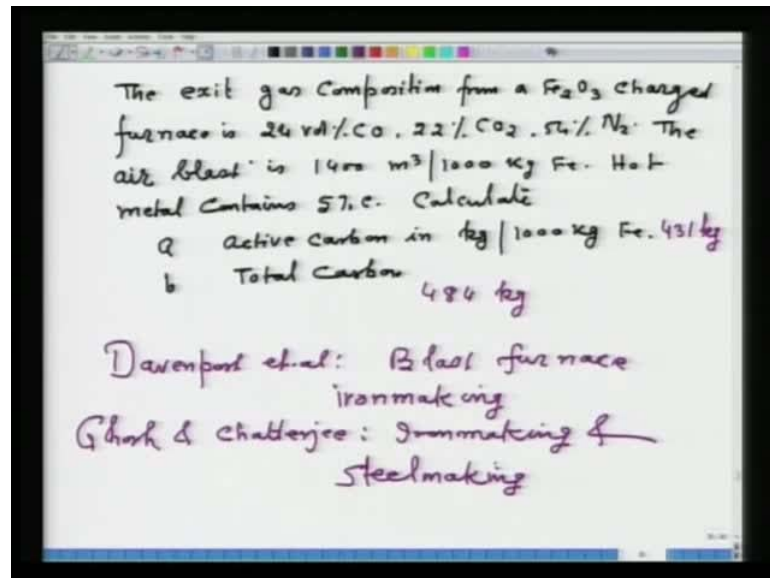 The exit gas Composition from a Fe2O3 charged
furnace is 24 vol% CO, 22% CO2, 54% N2. The
air blast is 1400 m³/1000 kg Fe. Hot
metal Contains 5% C. Calculate
a active carbon in kg/1000 kg Fe. 431 kg
b Total Carbon
484 kg
Davenport et.al: Blast furnace
ironmaking
Ghosh & Chatterjee: Ironmaking &
steelmaking